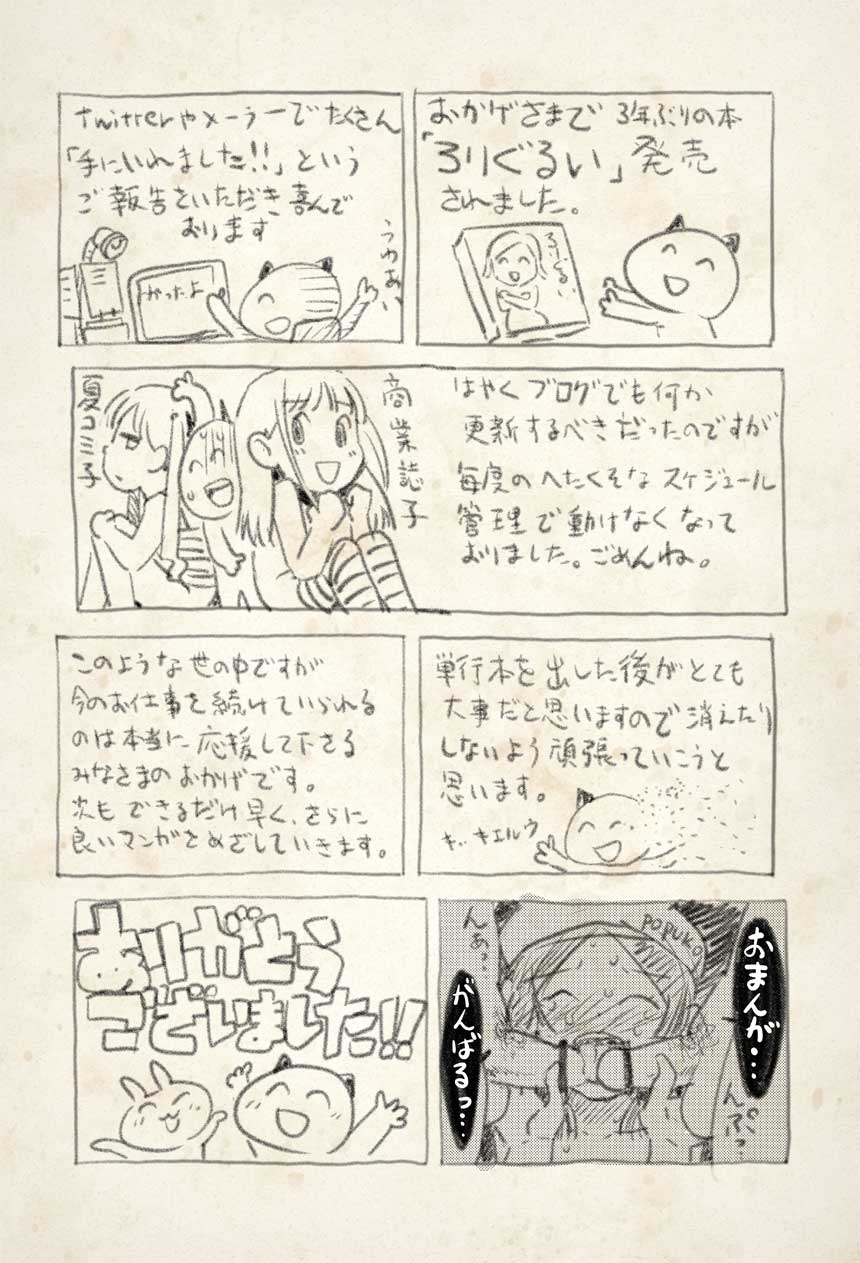 おかげさまで 3年ぶりの本
「ろりぐるい」発売
されました。
ろりぐるい
twitterやメーラーでたくさん
「手にいれました!!」という
ご報告をいただき喜んで
おります
うわあい
かったよ
はやくブログでも何か
更新するべきだったのですが
毎度のへたくそなスケジュール
管理で動けなくなって
おりました。ごめんね。
商業誌子
夏コミ子
単行本を出した後がとても
大事だと思いますので消えたり
しないよう頑張っていこうと
思います。
キエルウ
このような世の中ですが
今のお仕事を続けていられる
のは本当に応援して下さる
みなさまのおかげです。
次もできるだけ早く、さらに
良いマンガをめざしていきます。
おまんが・・・
んぷっ・・
popuko
んあっ・・
がんばるっ・・・
ありがとう
ございました!!